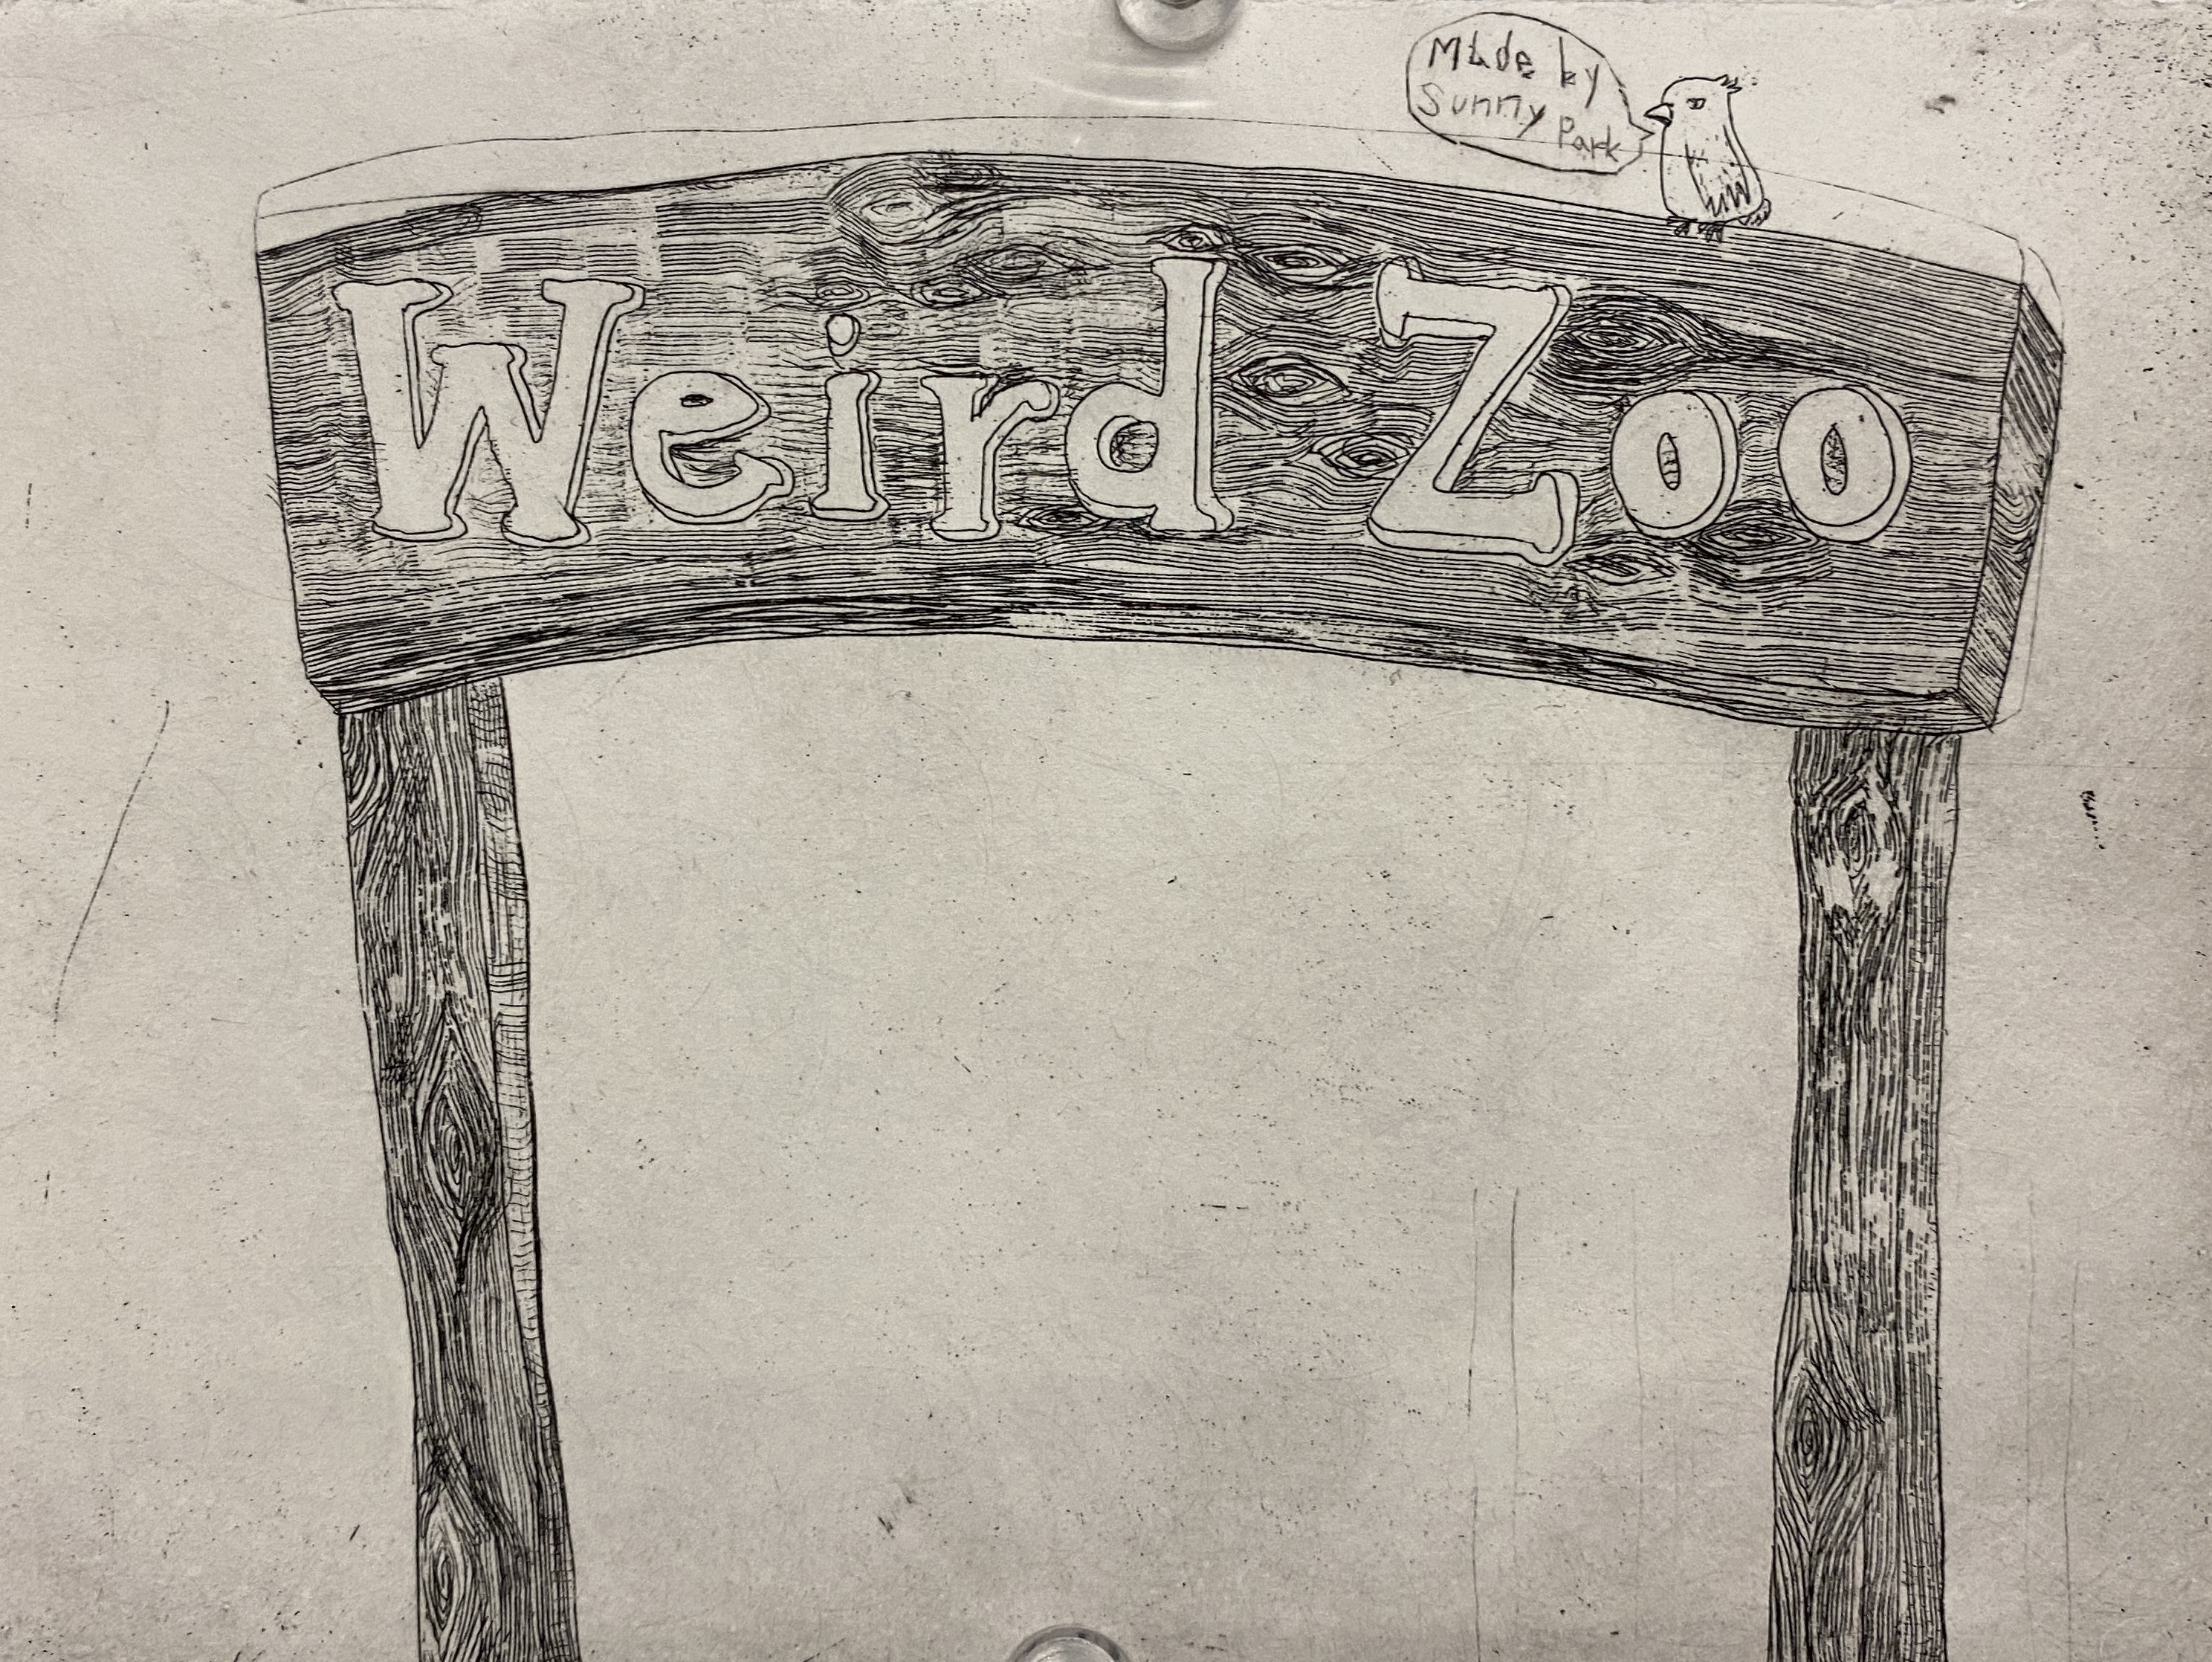 Made by
Sunny Park
Weird Zoo